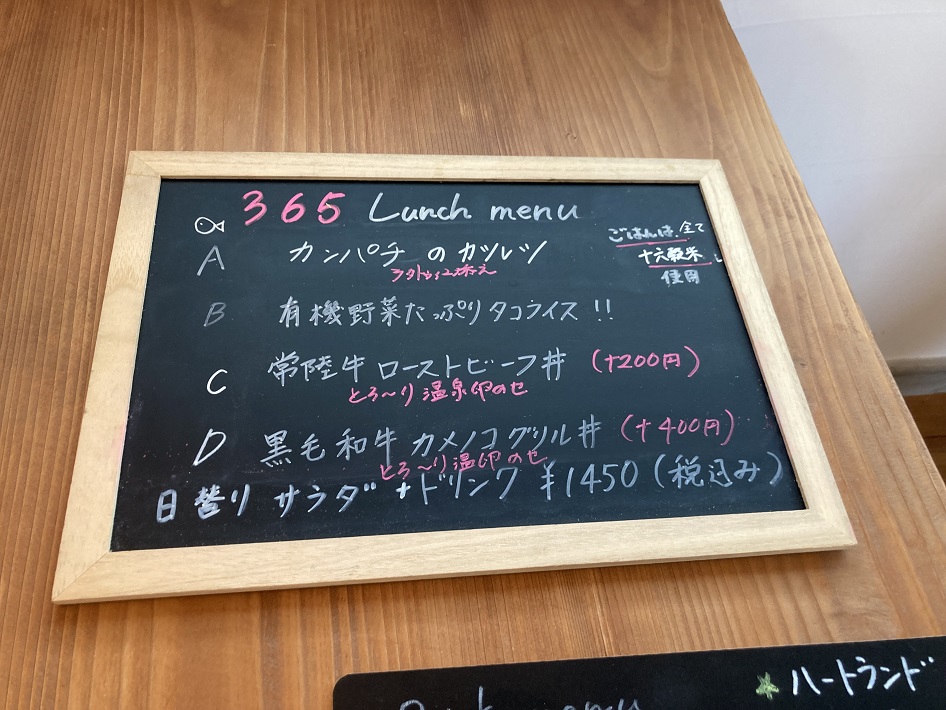 365 Lunch menu
A カンパチ の カツレツ
添え
ごはんは、全て
十六穀米
使用
B 有機野菜たっぷりタコライス !!
C 常陸牛 ローストビーフ丼 (+200円)
とろ〜り 温泉卵のせ
D 黒毛和牛 カメノコグリル丼 (+400円)
とろ〜り温卵のせ
日替り サラダ + ドリンク ¥1450 (税込み)
ハートランド
menu